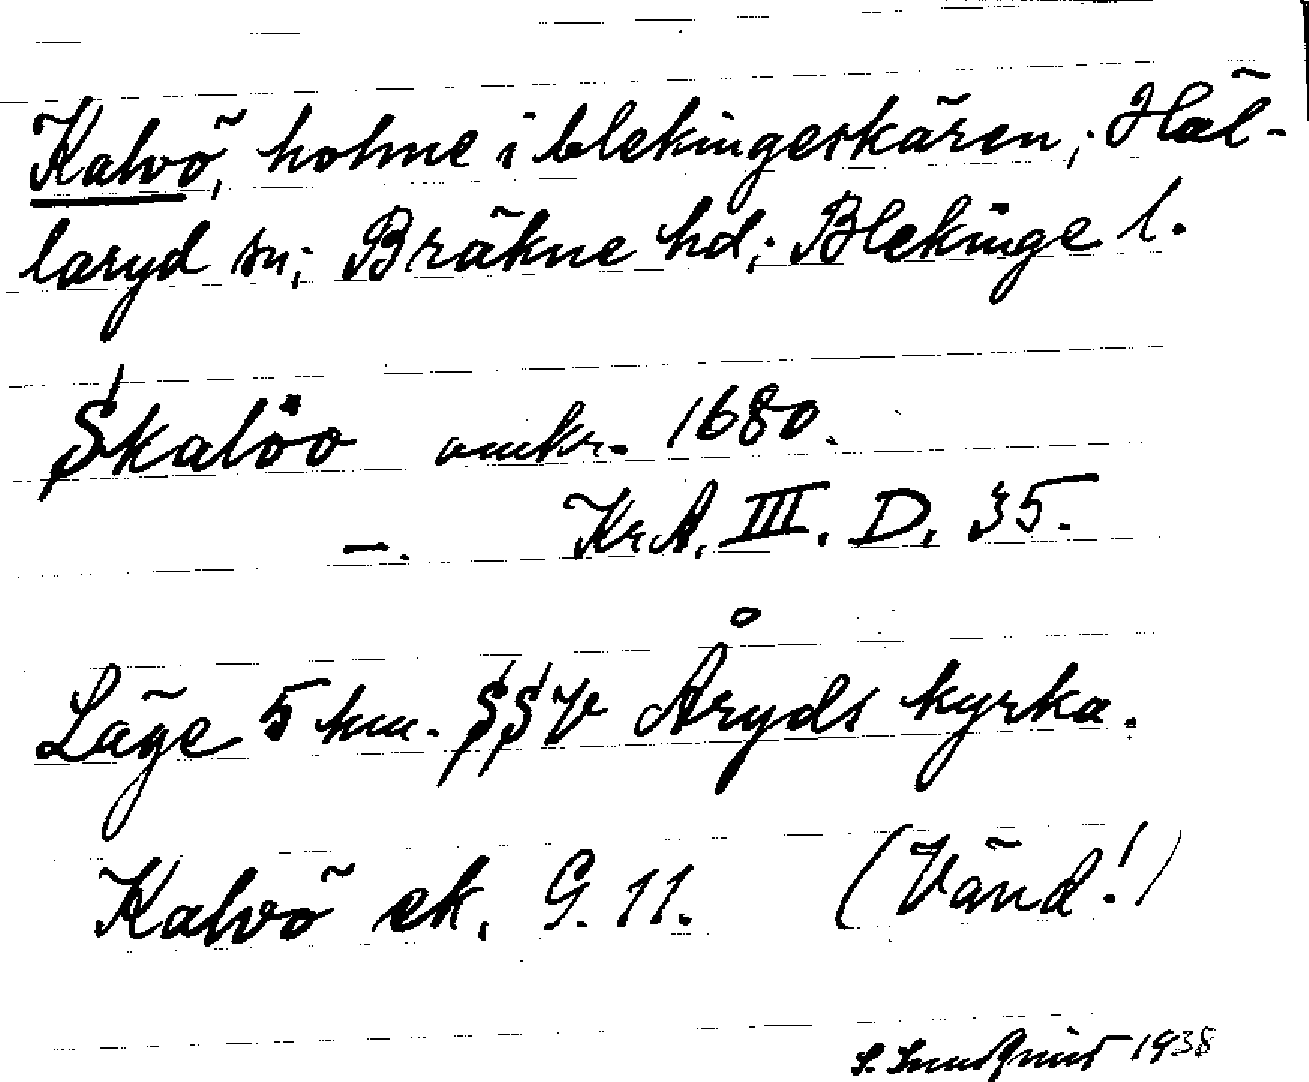 Kalvö, holme i blekingeskären; Häl-
laryd sn; Bräkne hd; Blekinge l.
Skalöo omkr. 1680.
—. KrA. III. D. 35.
Läge 5 km. SSV Åryds kyrka.
Kalvö ek. G. 11. (Vänd!)
S. Lundqvist 1938